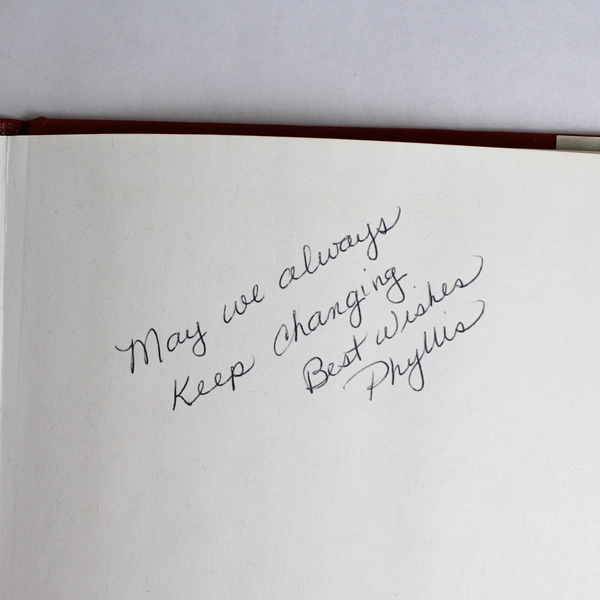 May we always
Keep Changing
Best Wishes
Phyllis